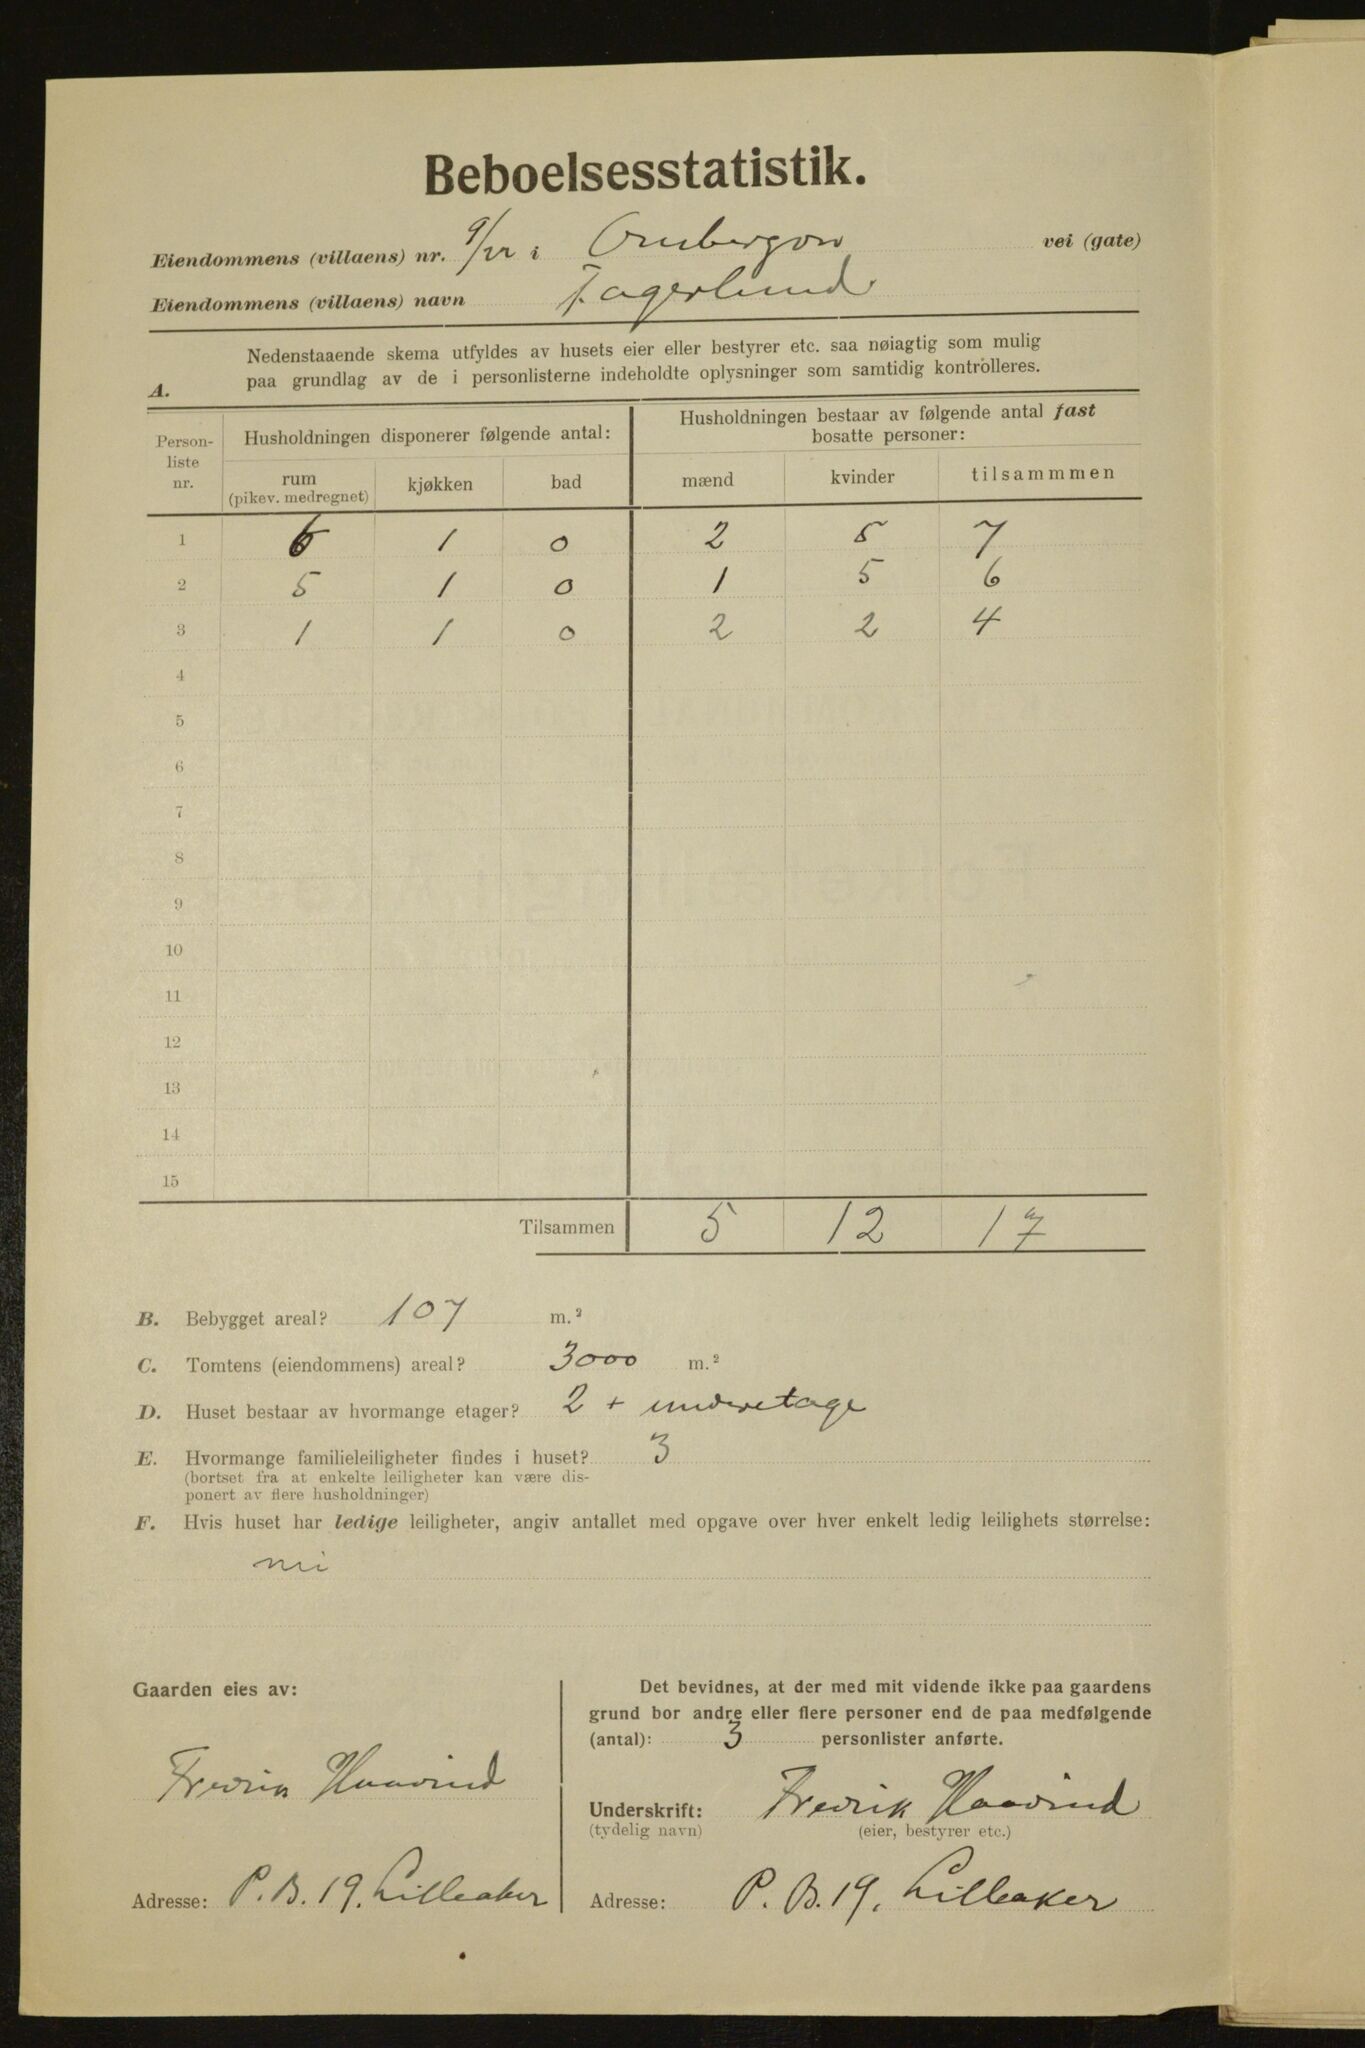 Beboelsesstatistik.
Eiendommens (villaens) nr. 9/22 i vei (gate)
Eiendommens (villaens) navn Fagerlund
A. Nedenstaaende skema utfyldes av husets eier eller bestyrer etc. saa nøiagtig som mulig
paa grundlag av de i personlisterne indeholdte oplysninger som samtidig kontrolleres.
Person-liste nr. Husholdningen disponerer følgende antal: Husholdningen bestaar av følgende antal fast bosatte personer:
rum (pikev. medregnet) kjøkken bad mænd kvinder tilsammmen
1 6 1 0 2 5 7
2 5 1 0 1 5 6
3 1 1 0 2 2 4
4
5
6
7
8
9
10
11
12
13
14
15
Tilsammen 5 12 17
B. Bebygget areal? 107 m.²
C. Tomtens (eiendommens) areal? 3000 m.²
D. Huset bestaar av hvormange etager? 2 + underetage
E. Hvormange familieleiligheter findes i huset? 3
(bortset fra at enkelte leiligheter kan være dis-
ponert av flere husholdninger)
F. Hvis huset har ledige leiligheter, angiv antallet med opgave over hver enkelt ledig leilighets størrelse:
Gaarden eies av:
Fredrik Haavind
Adresse: P. B. 19. Lilleaker
Det bevidnes, at der med mit vidende ikke paa gaardens
grund bor andre eller flere personer end de paa medfølgende
(antal): 3 personlister anførte.
Underskrift: Fredrik Haavind
(tydelig navn) (eier, bestyrer etc.)
Adresse: P. B. 19, Lilleaker